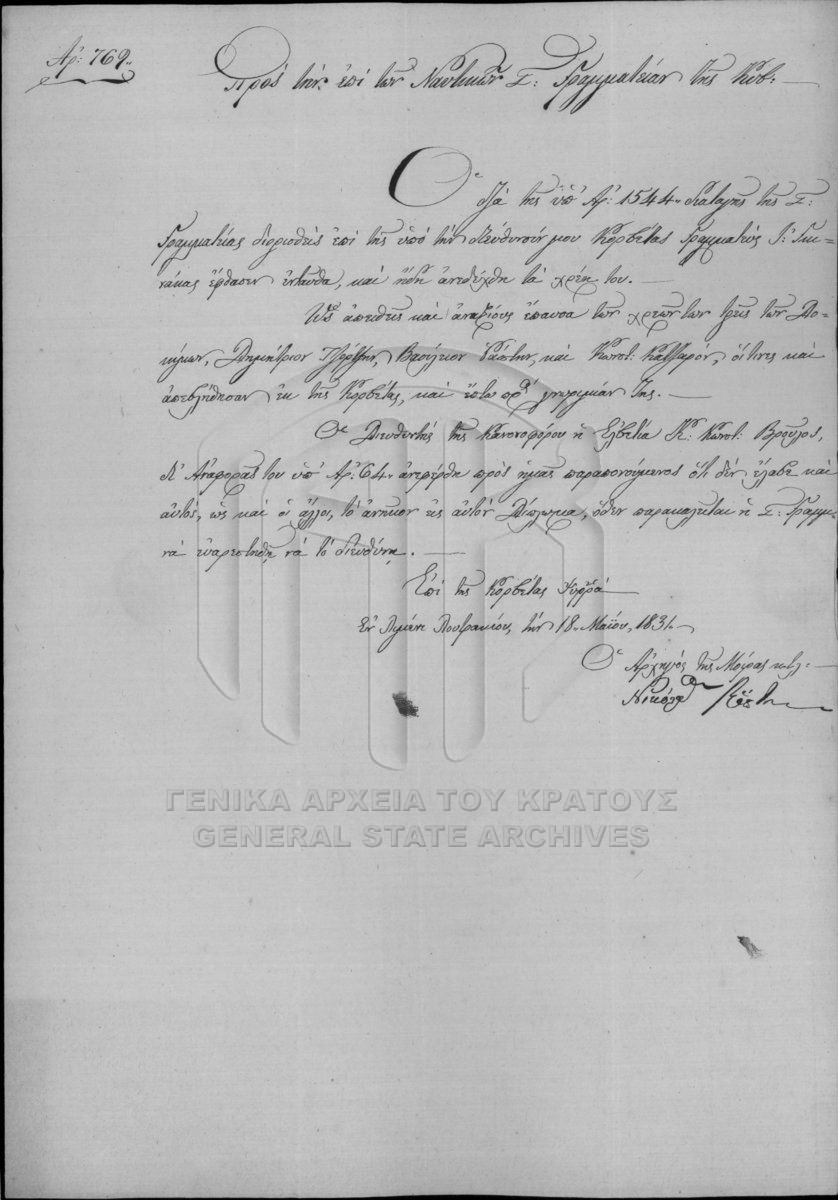 Ἀρ: 769.,
Πρὸς τὴν ἐπὶ τῶν Ναυτικῶν Σ: Γραμματείαν τῆς Κυβ:
Ὁ διὰ τῆς ὑπ' Ἀρ: 1544., διαταγῆς τῆς Σ:
Γραμματείας διορισθεὶς ἐπὶ τῆς ὑπὸ τὴν διεύθυνσίν μου Κορβέτας Γραμματεὺς Γ: Γκι-
νάκας ἔφθασεν ἐνταῦθα, καὶ ἤδη ἀνεδέχθη τὰ χρέη του.
Ὡς ἀπειθεῖς καὶ ἀναξίους ἔπαυσα τῶν χρεῶν των τρεῖς τῶν Δο-
κίμων, Δημήτριον, Βασίλειον Ῥάπτην, καὶ Κωνστ: Κατζαρόν, οἵτινες καὶ
ἀπεβλήθησαν ἐκ τῆς Κορβέτας, καὶ ἔστω πρὸς γνωριμίαν Της.
Ὁ Διευθυντὴς τῆς Κανονοφόρου ἡ Ἐλβετία Κ: Κωνστ: Βροῦλος,
δι' Ἀναφορᾶς του ὑπ' Ἀρ: 64., ἀνεφέρθη πρὸς ἡμᾶς παραπονούμενος ὅτι δὲν ἔλαβε καὶ
αὐτός, ὡς καὶ οἱ ἄλλοι, τὸ ἀνῆκον εἰς αὐτὸν Δίπλωμα, ὅθεν παρακαλεῖται ἡ Σ: Γραμμ:
νὰ εὐαρεστηθῇ νὰ τὸ διευθύνῃ.
Ἐπὶ τῆς Κορβέτας
Ἐν Λιμένι Λουτρακίου, τὴν 18., Μαΐου, 1831.,
Ὁ Ἀρχηγὸς τῆς Μοίρας κτλ:
ΓΕΝΙΚΑ ΑΡΧΕΙΑ ΤΟΥ ΚΡΑΤΟΥΣ
GENERAL STATE ARCHIVES